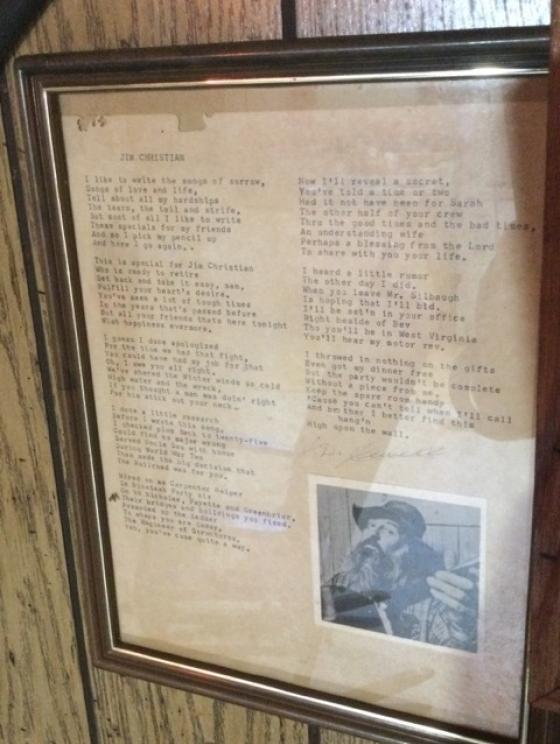 JIM CHRISTIAN
I like to write the songs of sorrow,
Songs of love and life,
Tell about all my hardships
The tears, the toil and strife,
But most of all I like to write
These specials for my friends
And so I pick my pencil up
And here I go again..
This is special for Jim Christian
Who is ready to retire
Set back and take it easy, man,
Fulfill your heart's desire.
You've seen a lot of tough times
In the years that's passed before
But all your friends thats here tonight
Wish happiness evermore.
I guess I done apologized
For the time we had that fight,
You could have had my job for that
Oh, I owe you all right.
We've shared the Winter winds so cold
High water and the wreck,
If you thought a man was doin' right
For him stick out your neck..
I done a little research
Before I wrote this song,
I checked plum back to twenty-five
Could find no major wrong
Served Uncle Sam with honor
During World War Two
Then made the big decision that
The Railroad was for you.
Hired on as Carpenter Helper
In Nineteen Forty Six
On to Nicholas, Fayette and Greenbrier,
Their bridges and buildings you fixed.
Promoted up the ladder
To where you are today,
The Engineer of
Yeh, you've come quite a way.
Now I'll reveal a secret,
You've told a time or two
Had it not have been for Sarah
The other half of your crew
Thru the good times and the bad times,
An understanding wife
Perhaps a blessing from the Lord
To share with you your life.
I heard a little rumor
The other day I did.
When you leave Mr. Silbaugh
Is hoping that I'll bid.
I'll be set'n in your office
Right beside of Bev
Tho you'll be in West Virginia
You'll hear my motor rev.
I throwed in nothing on the gifts
Even got my dinner free
But the party wouldn't be complete
Without a piece from me.
Keep the spare room handy
'Cause you can't tell when I'll call
And brother I better find this
hang'n
High upon the wall.